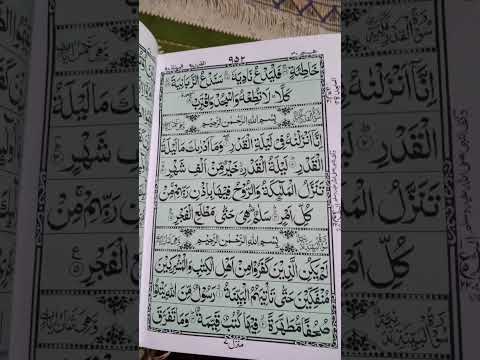 ٩٥٢
خَاطِئَةٍ فَلْيَدْعُ نَادِيَهٗ سَنَدْعُ الزَّبَانِيَةَ
كَلَّا لَا تُطِعْهُ وَاسْجُدْ وَاقْتَرِبْ
بِسْمِ اللّٰهِ الرَّحْمٰنِ الرَّحِيْمِ
اِنَّاۤ اَنْزَلْنٰهُ فِیْ لَيْلَةِ الْقَدْرِ وَمَاۤ اَدْرٰىكَ مَا لَيْلَةُ
الْقَدْرِ لَيْلَةُ الْقَدْرِ خَيْرٌ مِّنْ اَلْفِ شَهْرٍ
تَنَزَّلُ الْمَلٰٓئِكَةُ وَالرُّوْحُ فِيْهَا بِاِذْنِ رَبِّهِمْ مِّنْ
كُلِّ اَمْرٍ سَلٰمٌ هِیَ حَتّٰی مَطْلَعِ الْفَجْرِ
بِسْمِ اللّٰهِ الرَّحْمٰنِ الرَّحِيْمِ
لَمْ يَكُنِ الَّذِيْنَ كَفَرُوْا مِنْ اَهْلِ الْكِتٰبِ وَالْمُشْرِكِيْنَ
مُنْفَكِّيْنَ حَتّٰی تَاْتِيَهُمُ الْبَيِّنَةُ رَسُوْلٌ مِّنَ اللّٰهِ يَتْلُوْا
صُحُفًا مُّطَهَّرَةً فِيْهَا كُتُبٌ قَيِّمَةٌ وَمَا تَفَرَّقَ
منزل